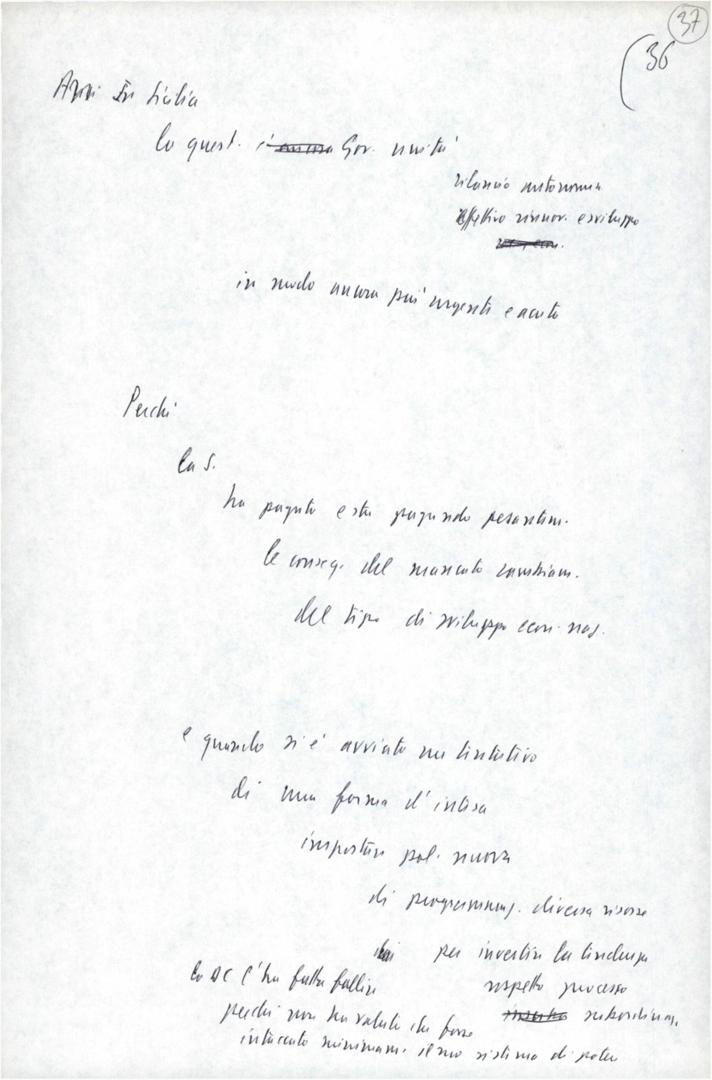 37
(36
Anzi In Sicilia
la quest. è ancora Gov. unità
rilancio autonomia
effettivo rinnov. e sviluppo
in modo ancora più urgente e acuto
Perché
la S.
ha pagato e sta pagando pesantem.
le conseg. del mancato cambiam.
del tipo di sviluppo econ. naz.
e quando si è avviato un tentativo
di una forma d'intesa
impostare pol. nuova
di programmaz. diversa risorse
per invertire la tendenza
rispetto processo
subordinaz.
la DC l'ha fatta fallire
perché non ha voluto che fosse
intaccato minimam. il suo sistema di potere